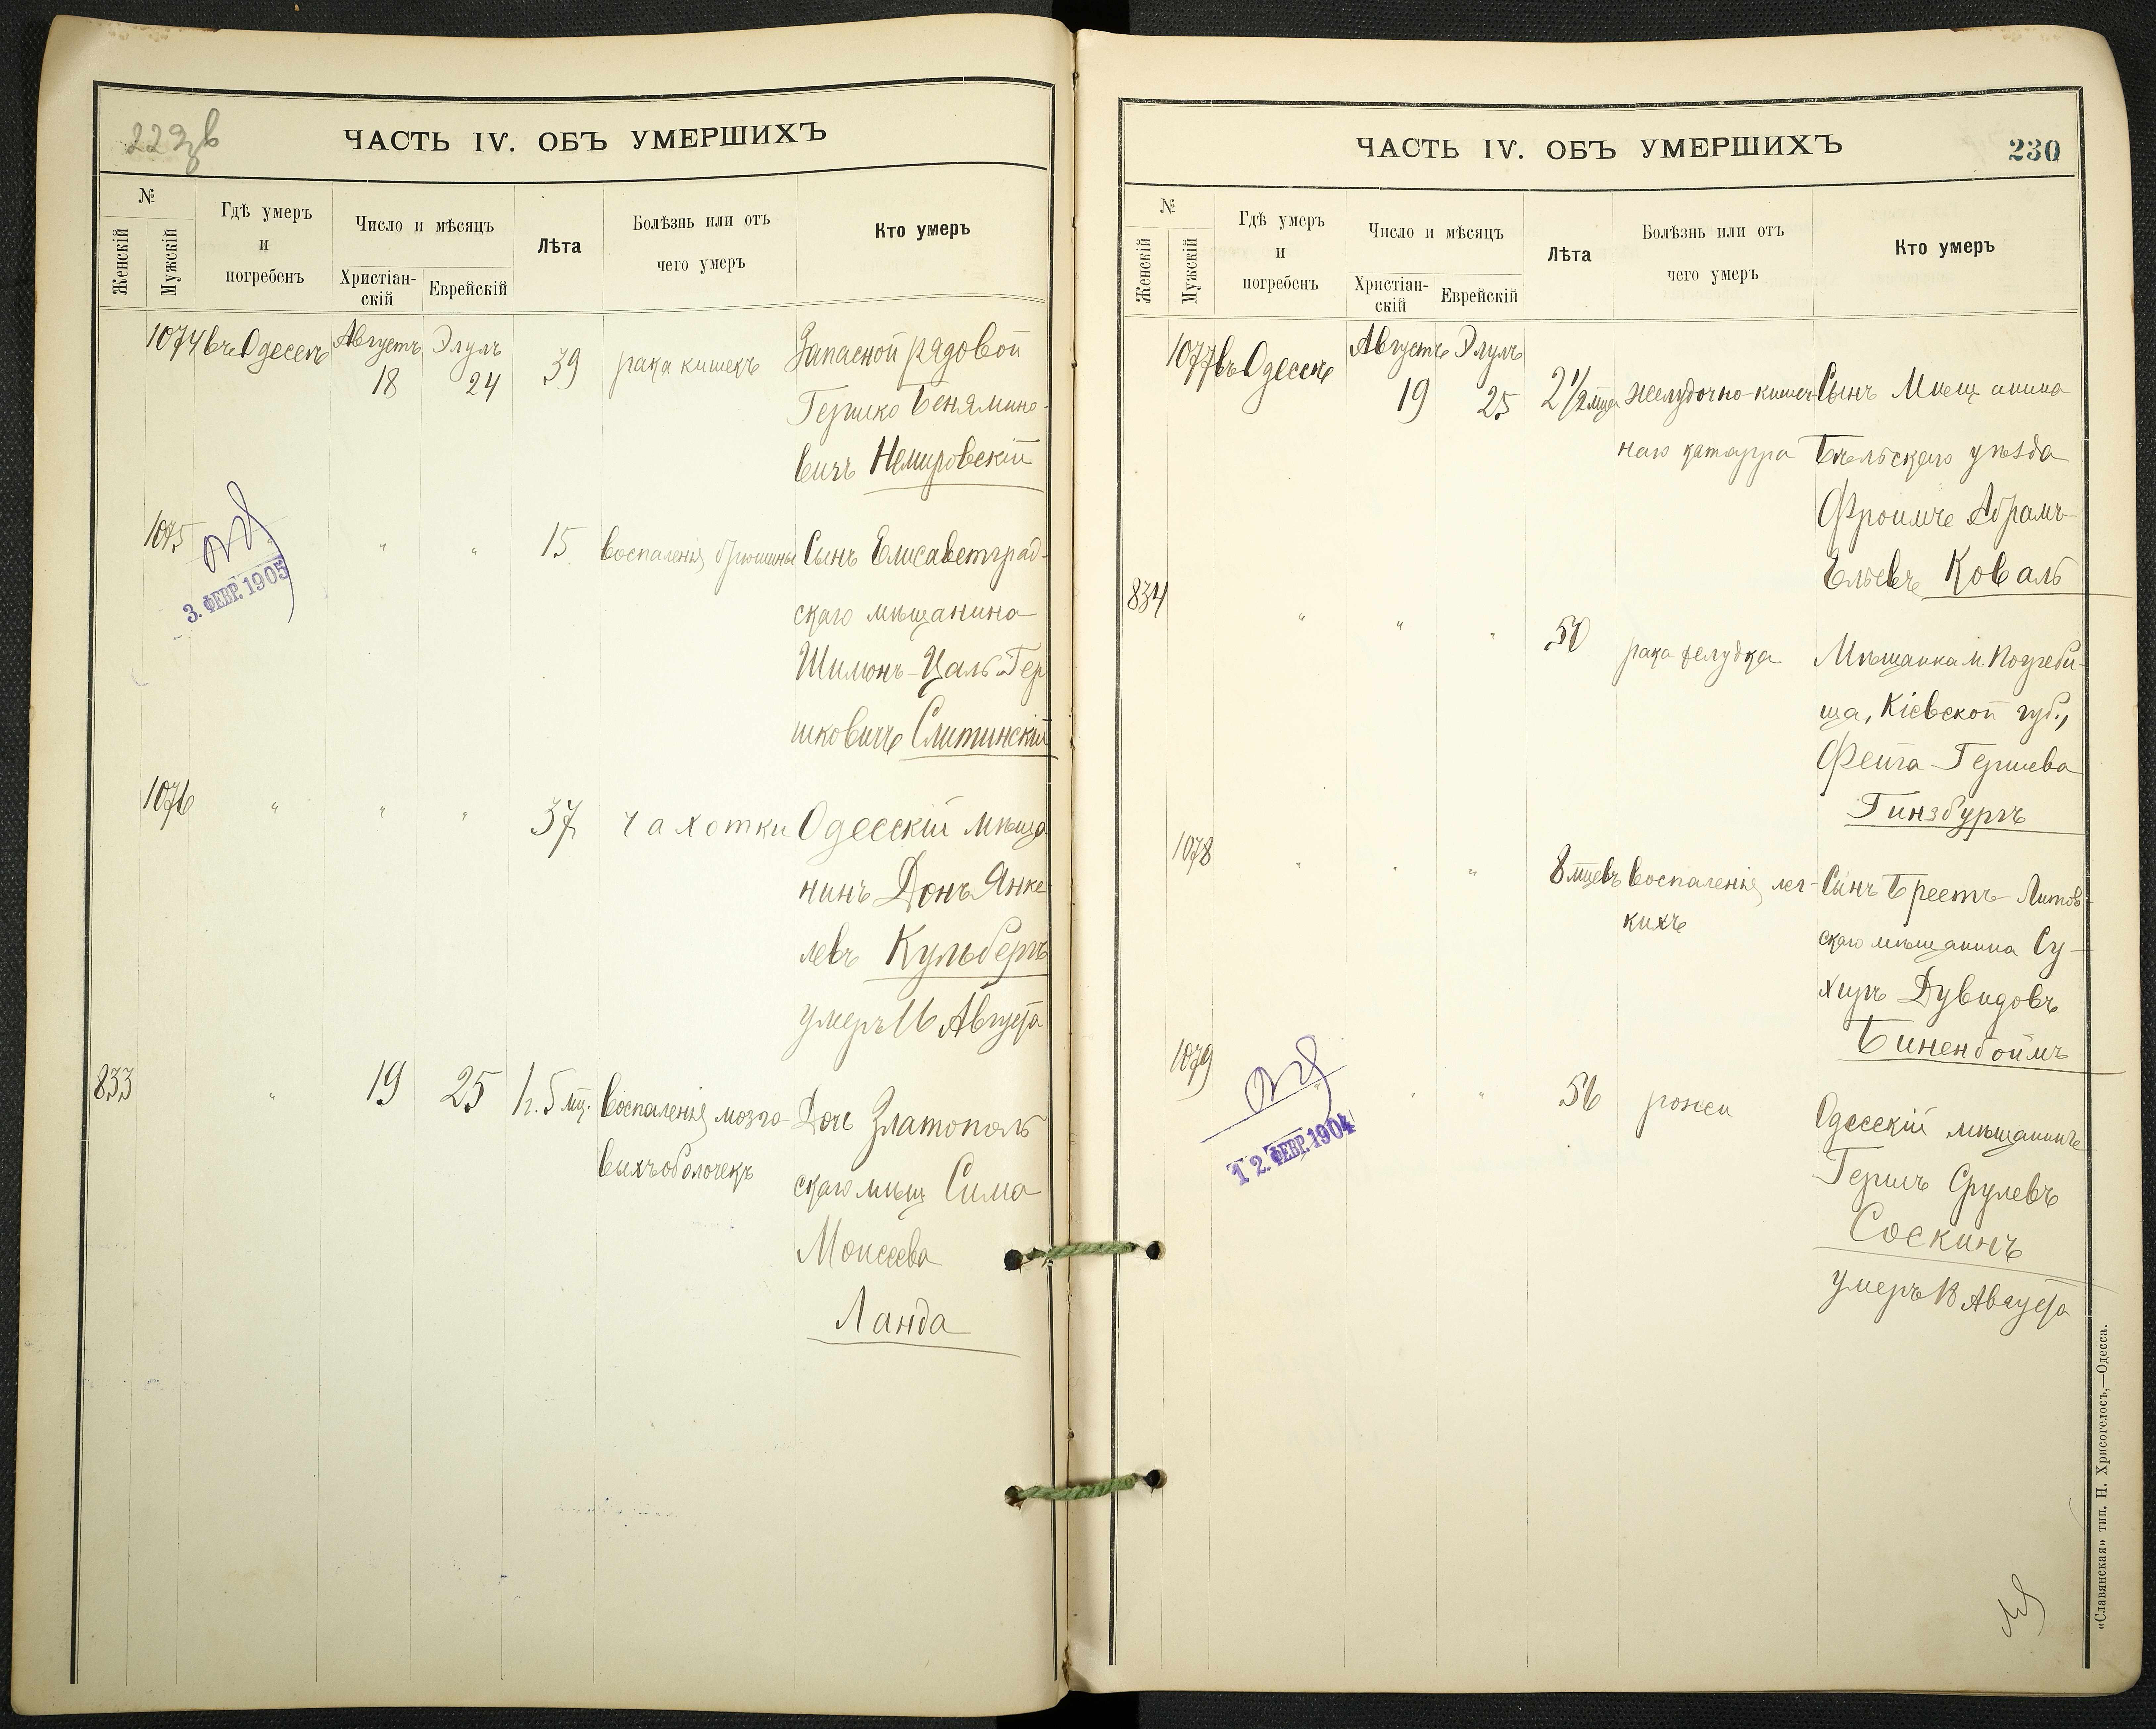 229 об
ЧАСТЬ IV. ОБЪ УМЕРШИХЪ
№
Женскій
Мужскій
Гдѣ умеръ
и
погребенъ
Число и мѣсяцъ
Христіан-
скій
Еврейскій
Лѣта
Болѣзнь или отъ
чего умеръ
Кто умеръ
1074 въ Одессѣ Августъ 18 Элулъ 24 39 рака кишекъ Запасной рядовой
Гершко Беньямино-
вичъ Немировскій
1075 " " " 15 воспаленія брюшины Сынъ Елисаветград-
скаго мѣщанина
Шимонъ-Цаль Гер
шковичъ Слитинскій
3. ФЕВР. 1905
1076 " " " 37 чахотки Одесскій мѣща
нинъ Донъ Янке-
левъ Кульбергъ
умеръ 16 Августа
833 " 19 25 1 г. 5 мц. воспаленія мозго- Дочь Златополь
выхъ оболочекъ скаго мѣщ Сима
Моисеева
Ланда
ЧАСТЬ IV. ОБЪ УМЕРШИХЪ
230
№
Женскій
Мужскій
Гдѣ умеръ
и
погребенъ
Число и мѣсяцъ
Христіан-
скій
Еврейскій
Лѣта
Болѣзнь или отъ
чего умеръ
Кто умеръ
1077 въ Одессѣ Августъ 19 Элулъ 25 2 1/2 мца желудочно-кишеч- Сынъ Мѣщанина
наго катарра Бѣльскаго уѣзда
Фроимъ Абрамъ
Ельевъ Коваль
834 " " " 50 рака желудка Мѣщанка м. Погреби-
ща, Кіевской губ.,
Фейга Гершева
Гинзбургъ
1078 " " " 8 мцевъ воспаленія лег- Сынъ Брестъ-Литов-
кихъ скаго мѣщанина Су-
херъ Дувидовъ
Биненбоймъ
1079 " " " 56 рожи Одесскій мѣщанинъ
Гершъ Срулевъ
Соскинъ
умеръ 18 Августа
12. ФЕВР. 1904
«Славянская» тип. Н. Хрисогелосъ,—Одесса.